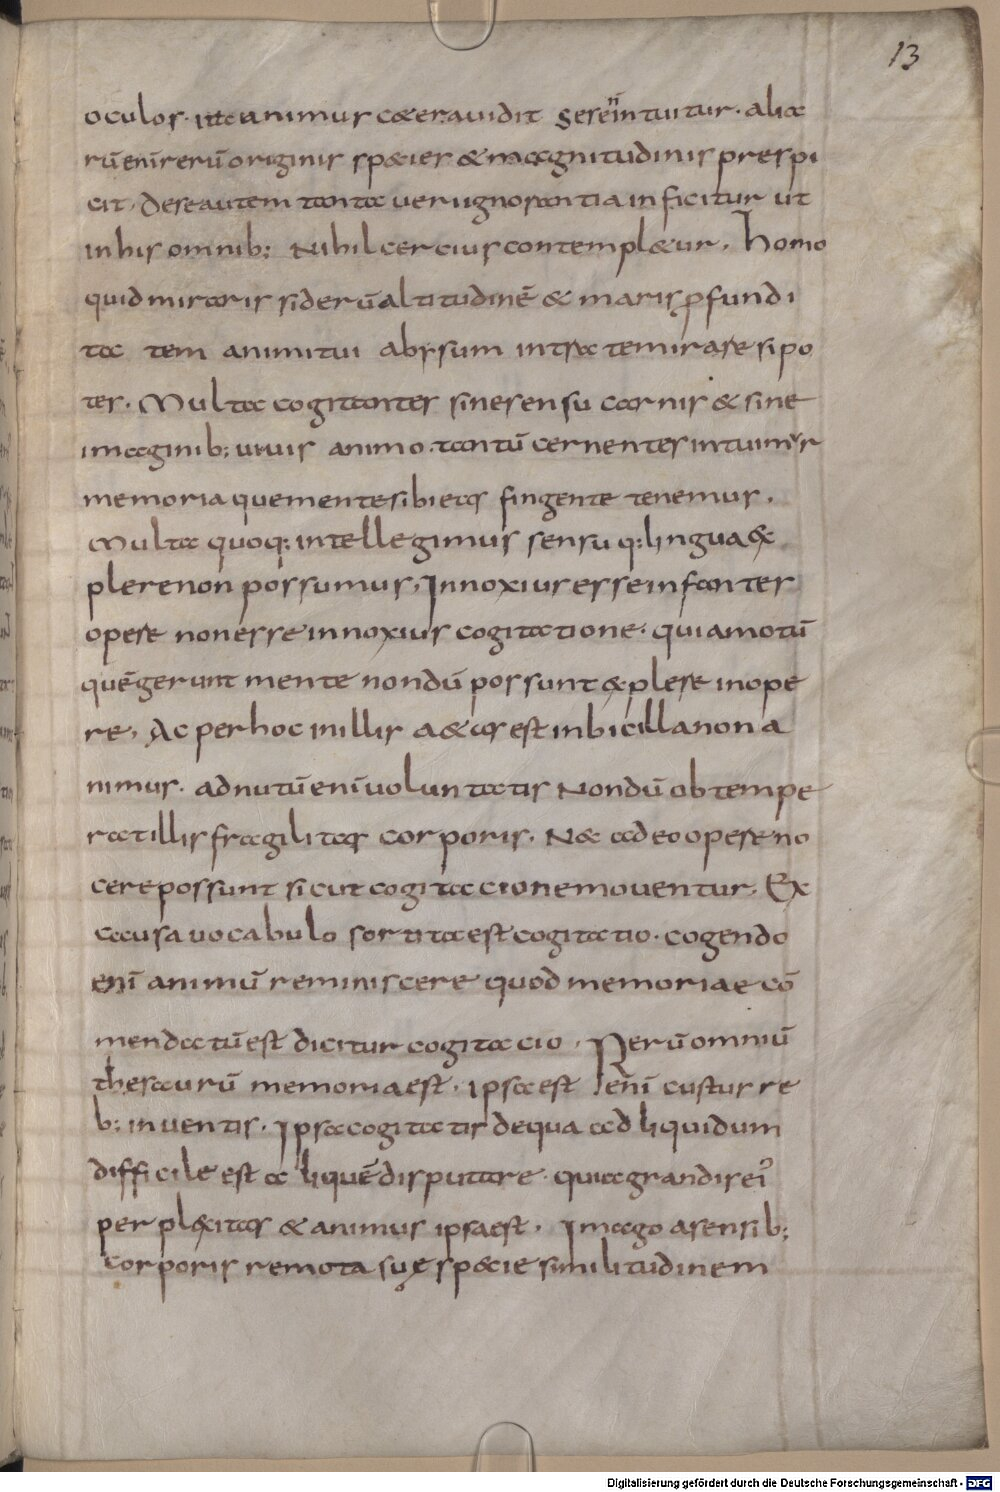 13
oculos. ita animus cetera uidit se senintuitur. alia
rū enī rerū originis species & magnitudinis prespi
cit. de se autem tanta ueri ignorantia inficitur ut
in his omnib; Nihil cercius contempletur. Homo
quid miraris siderū altitudinē & maris profundi
ta tem animi tui abyssum intra te mirare si po
tes. Multa cogitantes sine sensu carnis & sine
imaginib; uiuis animo. tantū cernentes intuimur
memoria que mente sibi etas fingente tenemus.
Multa quoq; intellegimus sensu q; lingua ex
plere non possumus. Innoxius esse infantes
opere non esse innoxius cogitatione. quia motū
quē gerunt mente nondū possunt explere in ope
re. Ac per hoc in illis aetas est inbicilla non a
nimus. ad nutū enī uoluntatis Nondū obtempe
rat illis fragilitas corporis. Nec adeo opere no
cere possunt sicut cogitacione mouentur. Ex
causa uocabulo sortita est cogitatio. cogendo
enī animū reminiscere quod memoriae cō
mendatū est dicitur cogitacio. Rerū omniū
thesaurū memoria est. ipsa est enī custus re
b; inuentis. Ipsa cogitatis de qua ad liquidum
difficile est aliquē disputare. quia grandis ei'
perplexitas & animus ipsa est. Imago a sensib;
corporis remota suę specie similitudinem
Digitalisierung gefördert durch die Deutsche Forschungsgemeinschaft - DFG